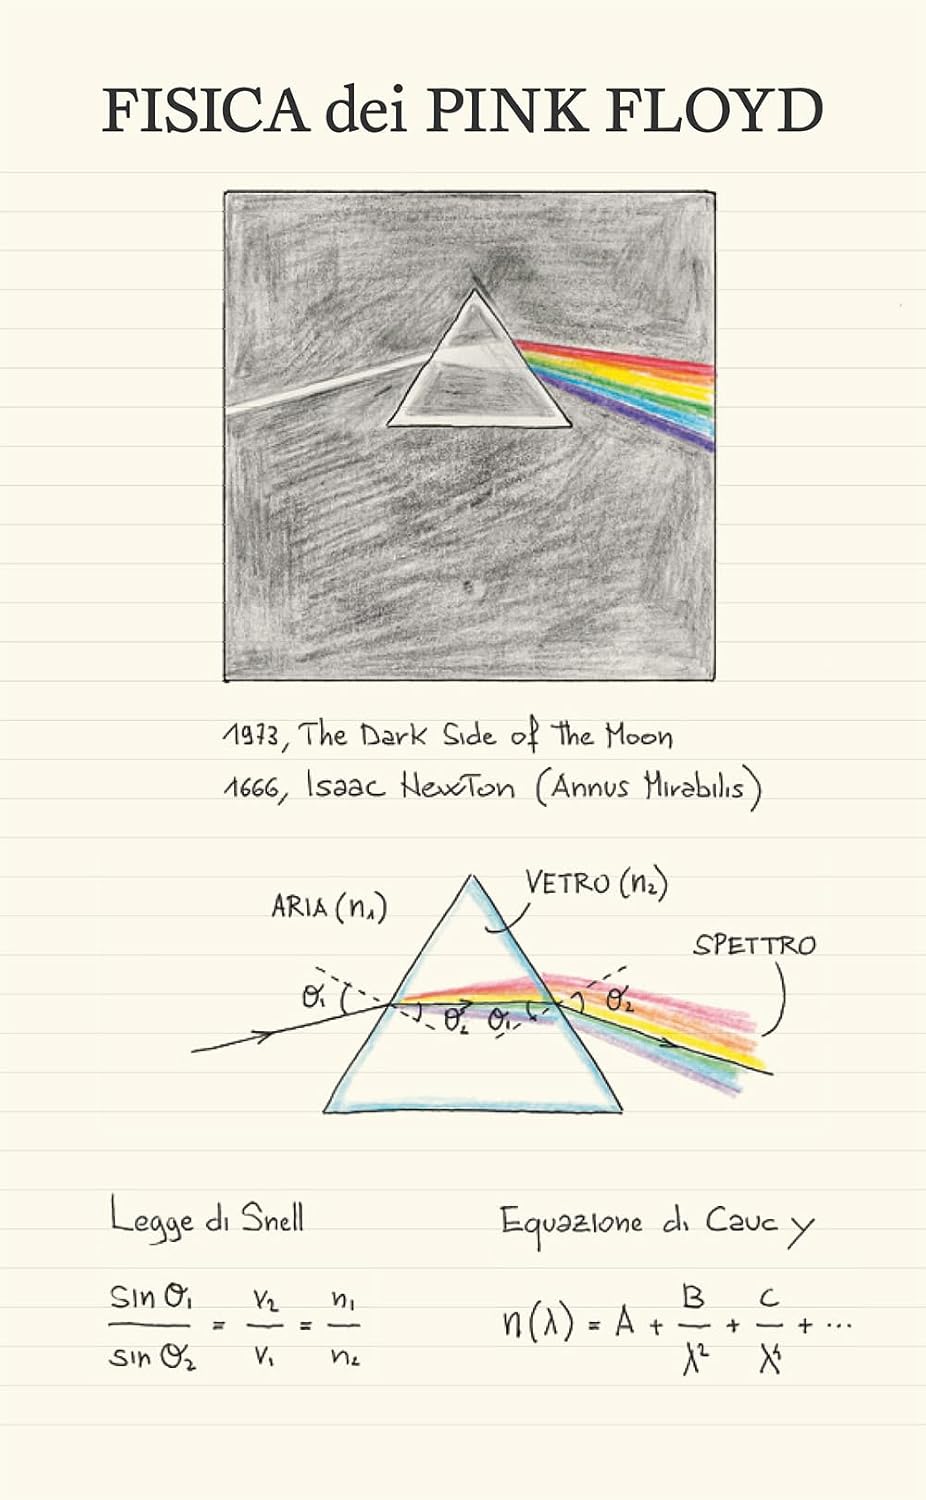 FISICA dei PINK FLOYD
1973, The Dark Side of the Moon
1666, Isaac Newton (Annus Mirabilis)
ARIA (n₁)
VETRO (n₂)
SPETTRO
θ₁
θ₂
θ₁
θ₂
Legge di Snell
sin θ₁ / sin θ₂ = v₂ / v₁ = n₁ / n₂
Equazione di Caucy
n(λ) = A + B / λ² + C / λ⁴ + ...